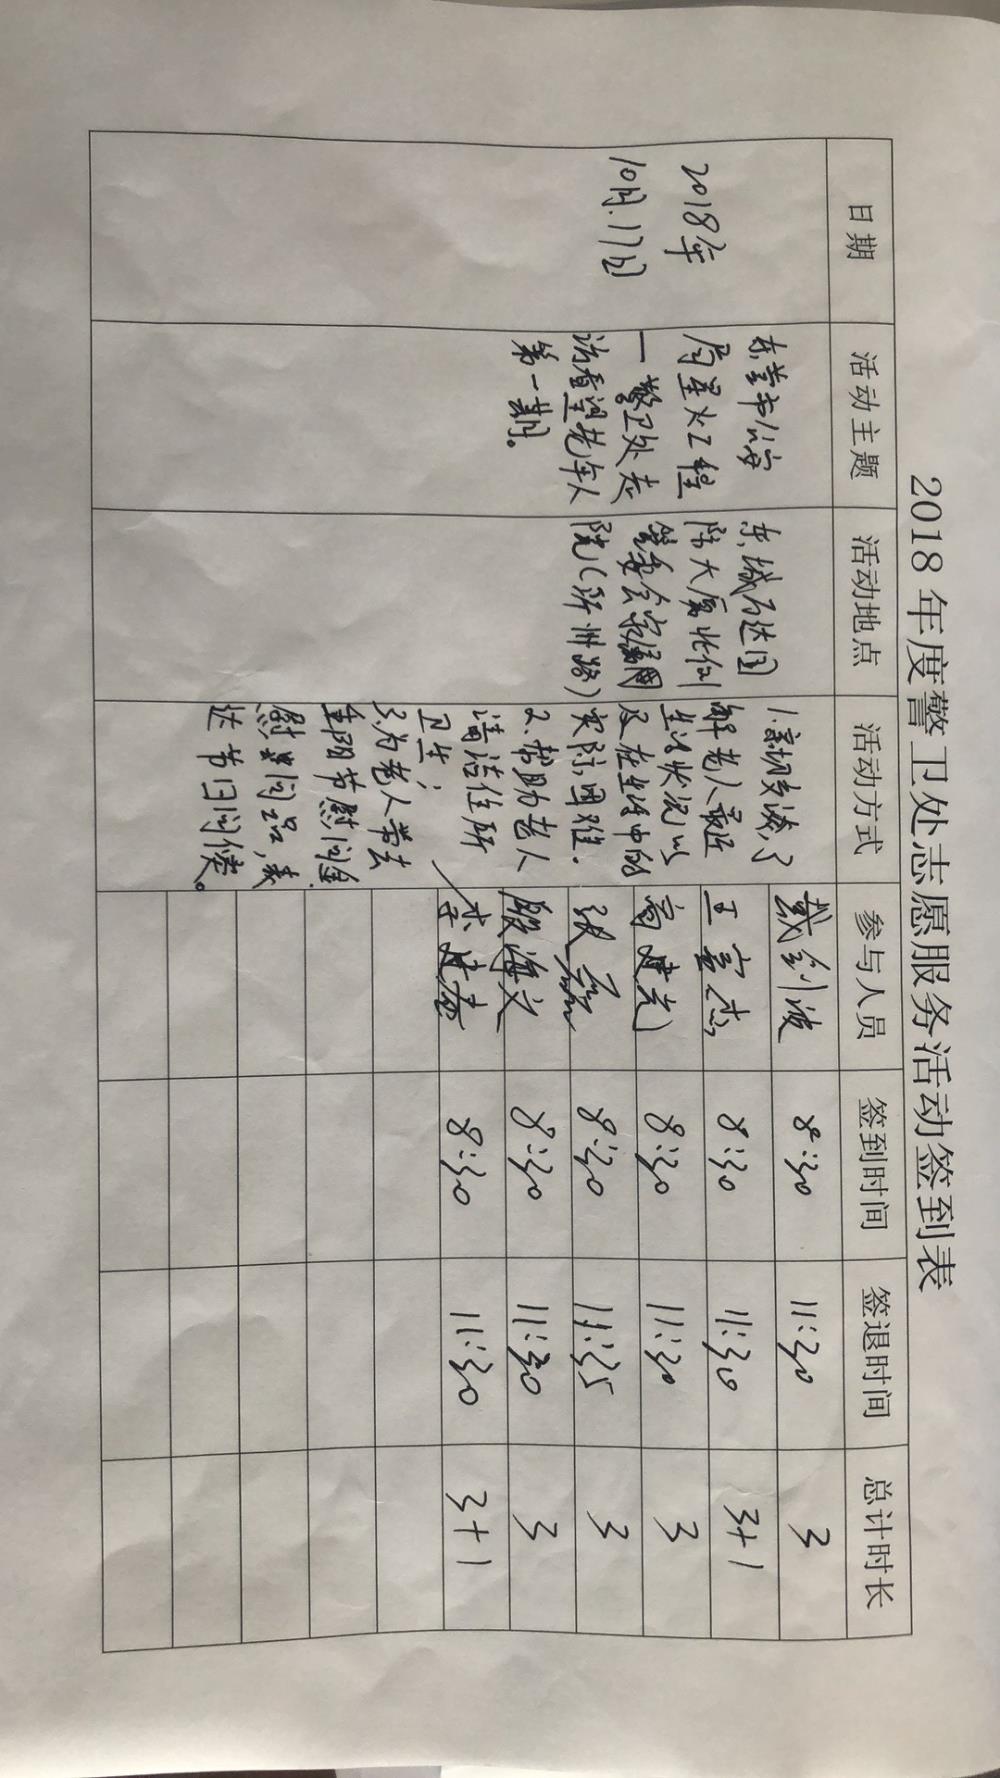 2018年度警卫处志愿服务活动签到表
日期 活动主题 活动地点 活动方式 参与人员 签到时间 签退时间 总计时长
2018年
10月.17日
东莞市公安
局星火工程
一警卫处走
访看望老年人
第一期。
东城万达国
际大厦
管委会家属
院(
1.亲切交谈,了
解老人最近
生活状况以
及在生活中的
实际困难.
2.帮助老人
清洁住所
卫生;
3.为老人带去
重阳节慰问金
慰问品,表
达节日问候。
戴剑波 8:30 11:30 3
王宝杰 8:30 11:30 3+1
高建光 8:30 11:30 3
张 8:30 11:35 3
殷海文 8:30 11:30 3
李建 8:30 11:30 3+1